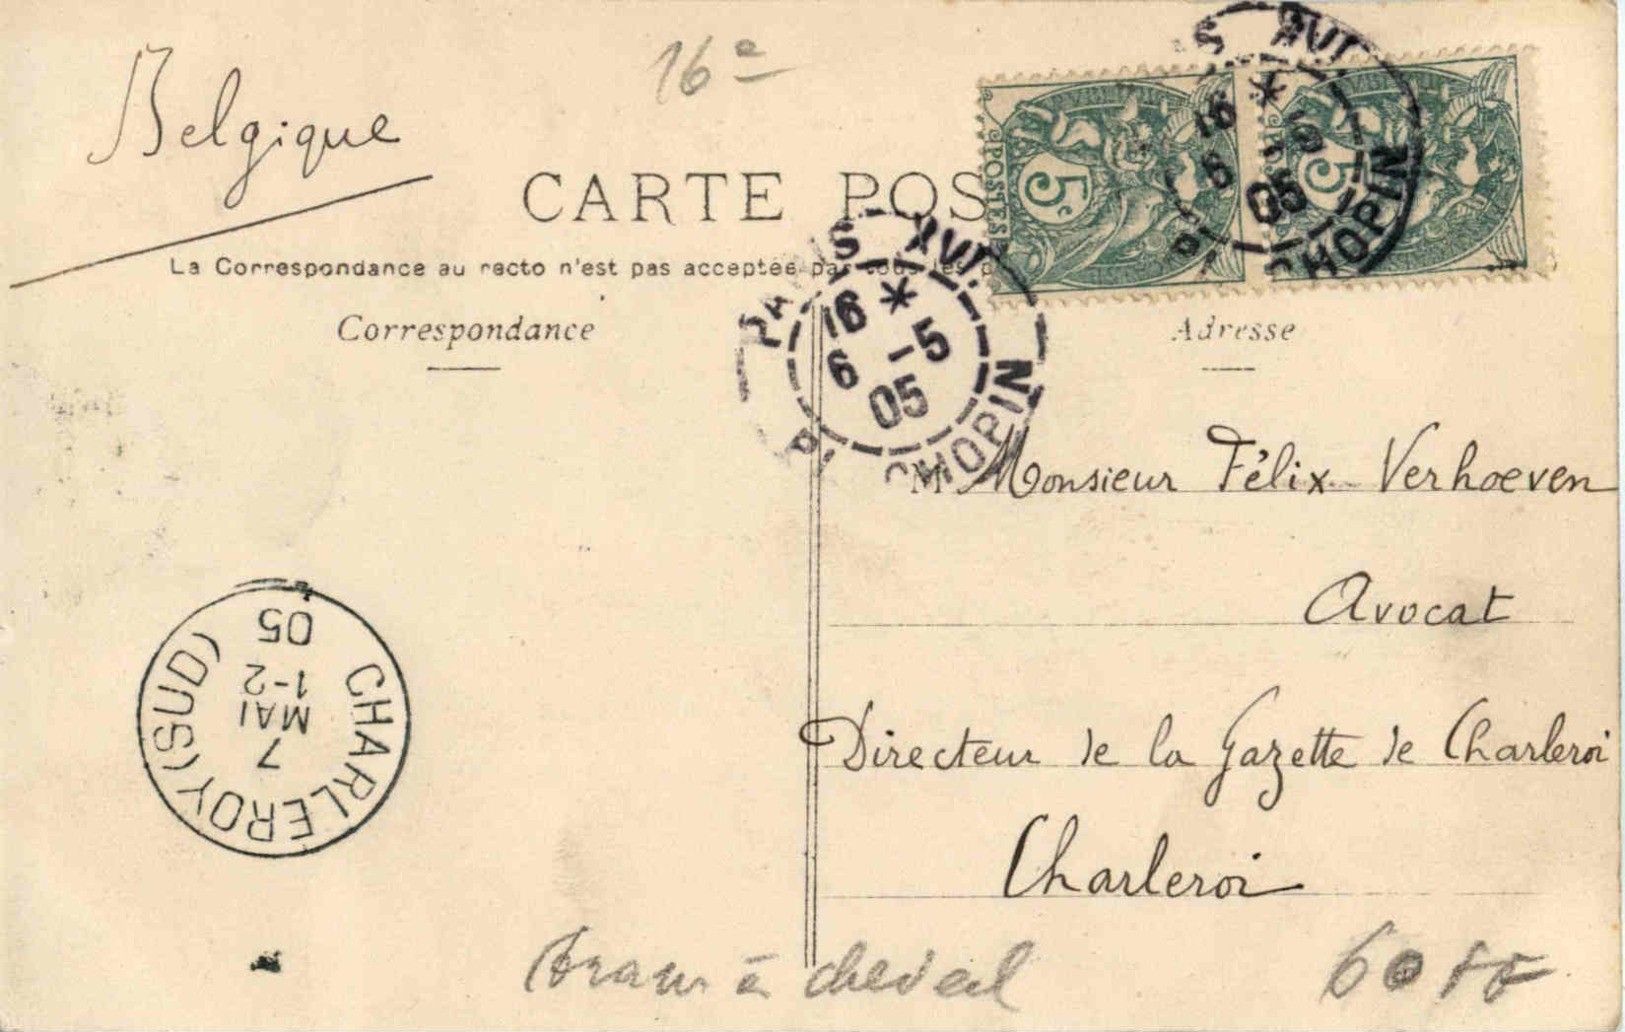 16e
Belgique
CARTE POS
La Correspondance au recto n'est pas acceptée par tous les p
Correspondance
Adresse
POSTES
5c
5
PARIS XVI
16 * 5
6 05
PL CHOPIN
S XVI
16 * 5
6 05
PL CHOPIN
M Monsieur Félix Verhoeven
Avocat
Directeur de la Gazette de Charleroi
Charleroi
CHARLEROY (SUD)
7
MAI
1-2
05
à cheval
60 FF